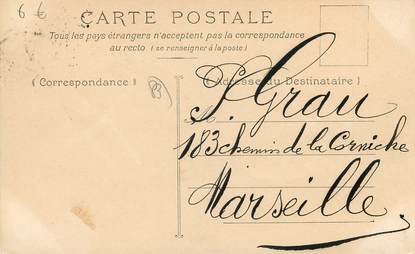 6 €
CARTE POSTALE
Tous les pays étrangers n'acceptent pas la correspondance
au recto (se renseigner à la poste)
(Correspondance)
(Adresse du Destinataire)
S. Grau
183 chemin de la Corniche
Marseille